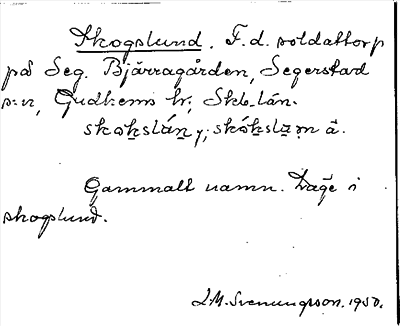 Skogslund. F.d. soldattorp
på Seg. Bjärragården, Segerstad
s:n, Gudhems hd; Skb. län.
Gammalt namn. Läge i
skogslund.
J.M. Svenungsson. 1950.